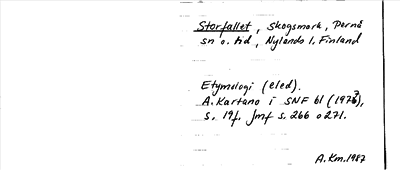 Storfallet, Skogsmark, Pernå
sn o. hd, Nylands l. Finland
Etymologi (eled).
A. Kartano i SNF 61 (1973),
s. 19f. Jmf s. 266 o 271.
A. Km. 1987